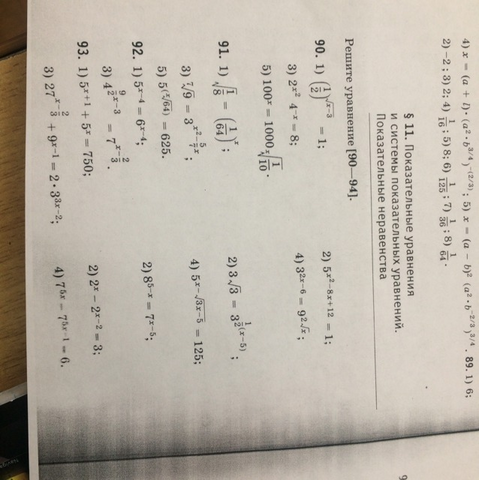 4) x = (a + l)·(a²·b^{3/4})^{-(2/3)}; 5) x = (a − b)² (a²·b^{-2/3})^{3/4}. 89. 1) 6;
2) −2; 3) 2; 4) 1/16; 5) 8; 6) 1/125; 7) 1/36; 8) 1/64.
§ 11. Показательные уравнения
и системы показательных уравнений.
Показательные неравенства
Решите уравнение [90—94].
90. 1) (1/2)^{√x−3} = 1; 2) 5^{x²−8x+12} = 1;
3) 2^{x²}·4^{−x} = 8; 4) 3^{2x−6} = 9^{2√x};
5) 100^x = 1000 \sqrt[x]{1/10}.
91. 1) √(1/8) = (1/64)^x; 2) 3√3 = 3^{1/2(x−5)};
3) \sqrt[7]{9} = 3^{x²−5/7x}; 4) 5^{x−√3x−5} = 125;
5) 5^{(\sqrt[x]{64})} = 625.
92. 1) 5^{x−4} = 6^{x−4}; 2) 8^{5−x} = 7^{x−5};
3) 4^{9/2x−3} = 7^{x−2/3}.
93. 1) 5^{x+1} + 5^x = 750; 2) 2^x − 2^{x−2} = 3;
3) 27^{x−2/3} + 9^{x−1} = 2·3^{3x−2}; 4) 7^{5x} − 7^{5x−1} = 6.